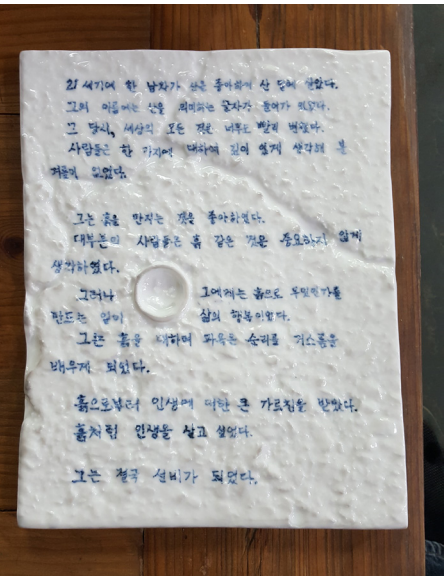 21세기에 한 남자가 산을 좋아하여 산 밑에 살았다.
그의 이름에는 산을 의미하는 글자가 들어가 있었다.
그 당시, 세상의 모든 것은 너무도 빨리 변했다.
사람들은 한 가지에 대하여 깊이 있게 생각해 본
겨를이 없었다.
그는 흙을 만지는 것을 좋아하였다.
대부분의 사람들은 흙 같은 것은 중요하지 않게
생각하였다.
그러나 그에게는 흙으로 무엇인가를
만드는 일이 삶의 행복이었다.
그는 흙을 대하며 순리를 거스름을
배우게 되었다.
흙으로부터 인생에 대한 큰 가르침을 받았다.
흙처럼 인생을 살고 싶었다.
그는 결국 선비가 되었다.